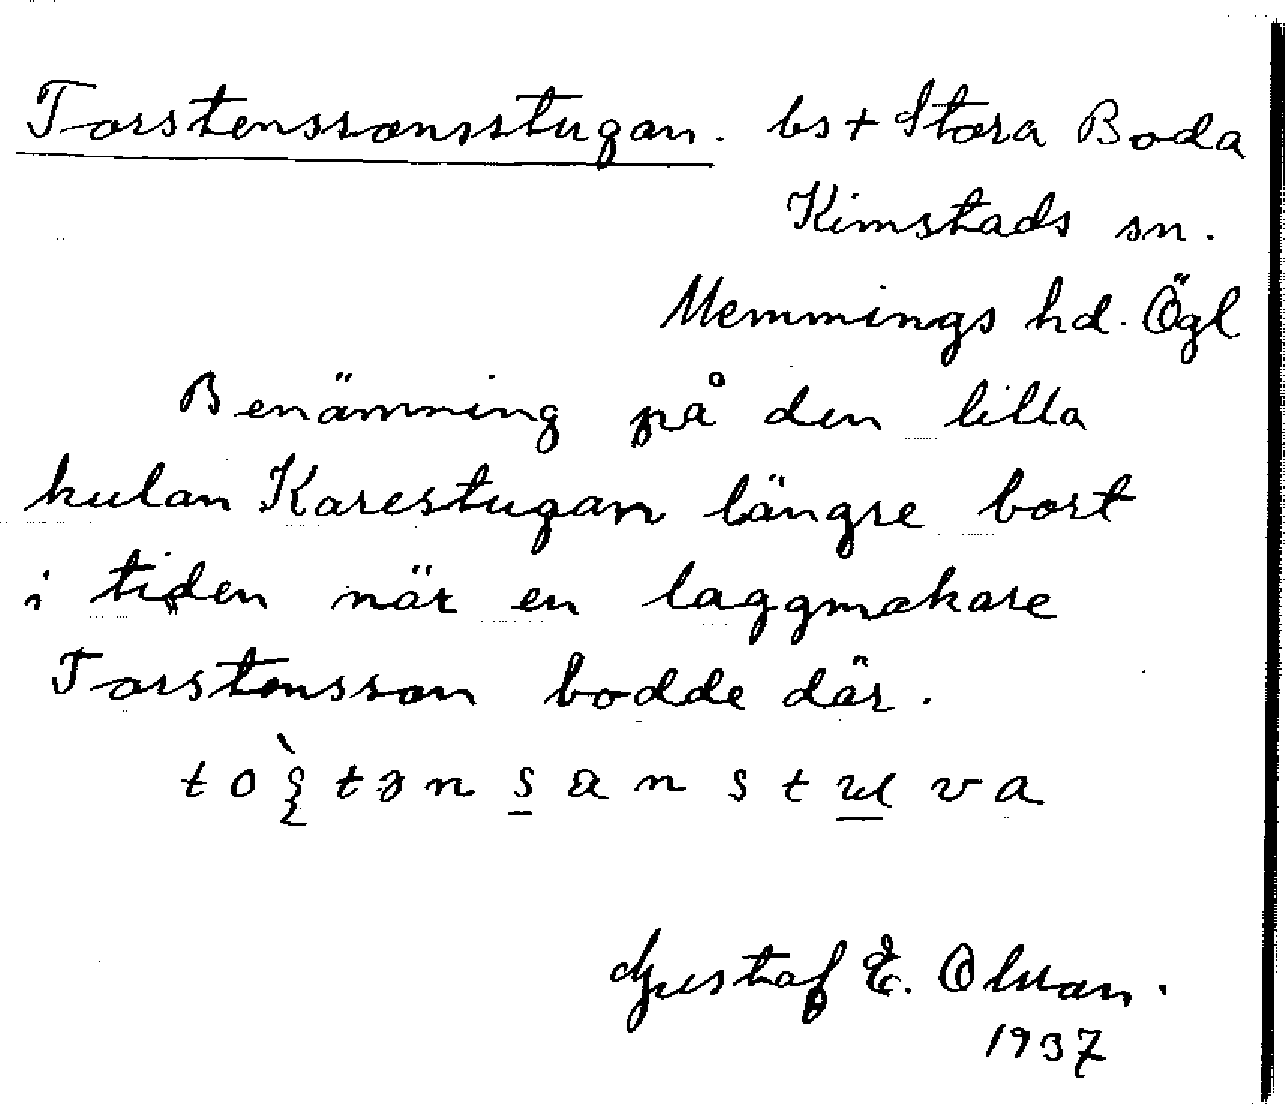 Torstenssonsstugan. bs + Stora Boda
Kimstads sn.
Memmings hd. Ögl
Benämning på den lilla
kulan Karestugan längre bort
i tiden när en laggmakare
Torstensson bodde där.
Gustaf E. Olsson.
1937